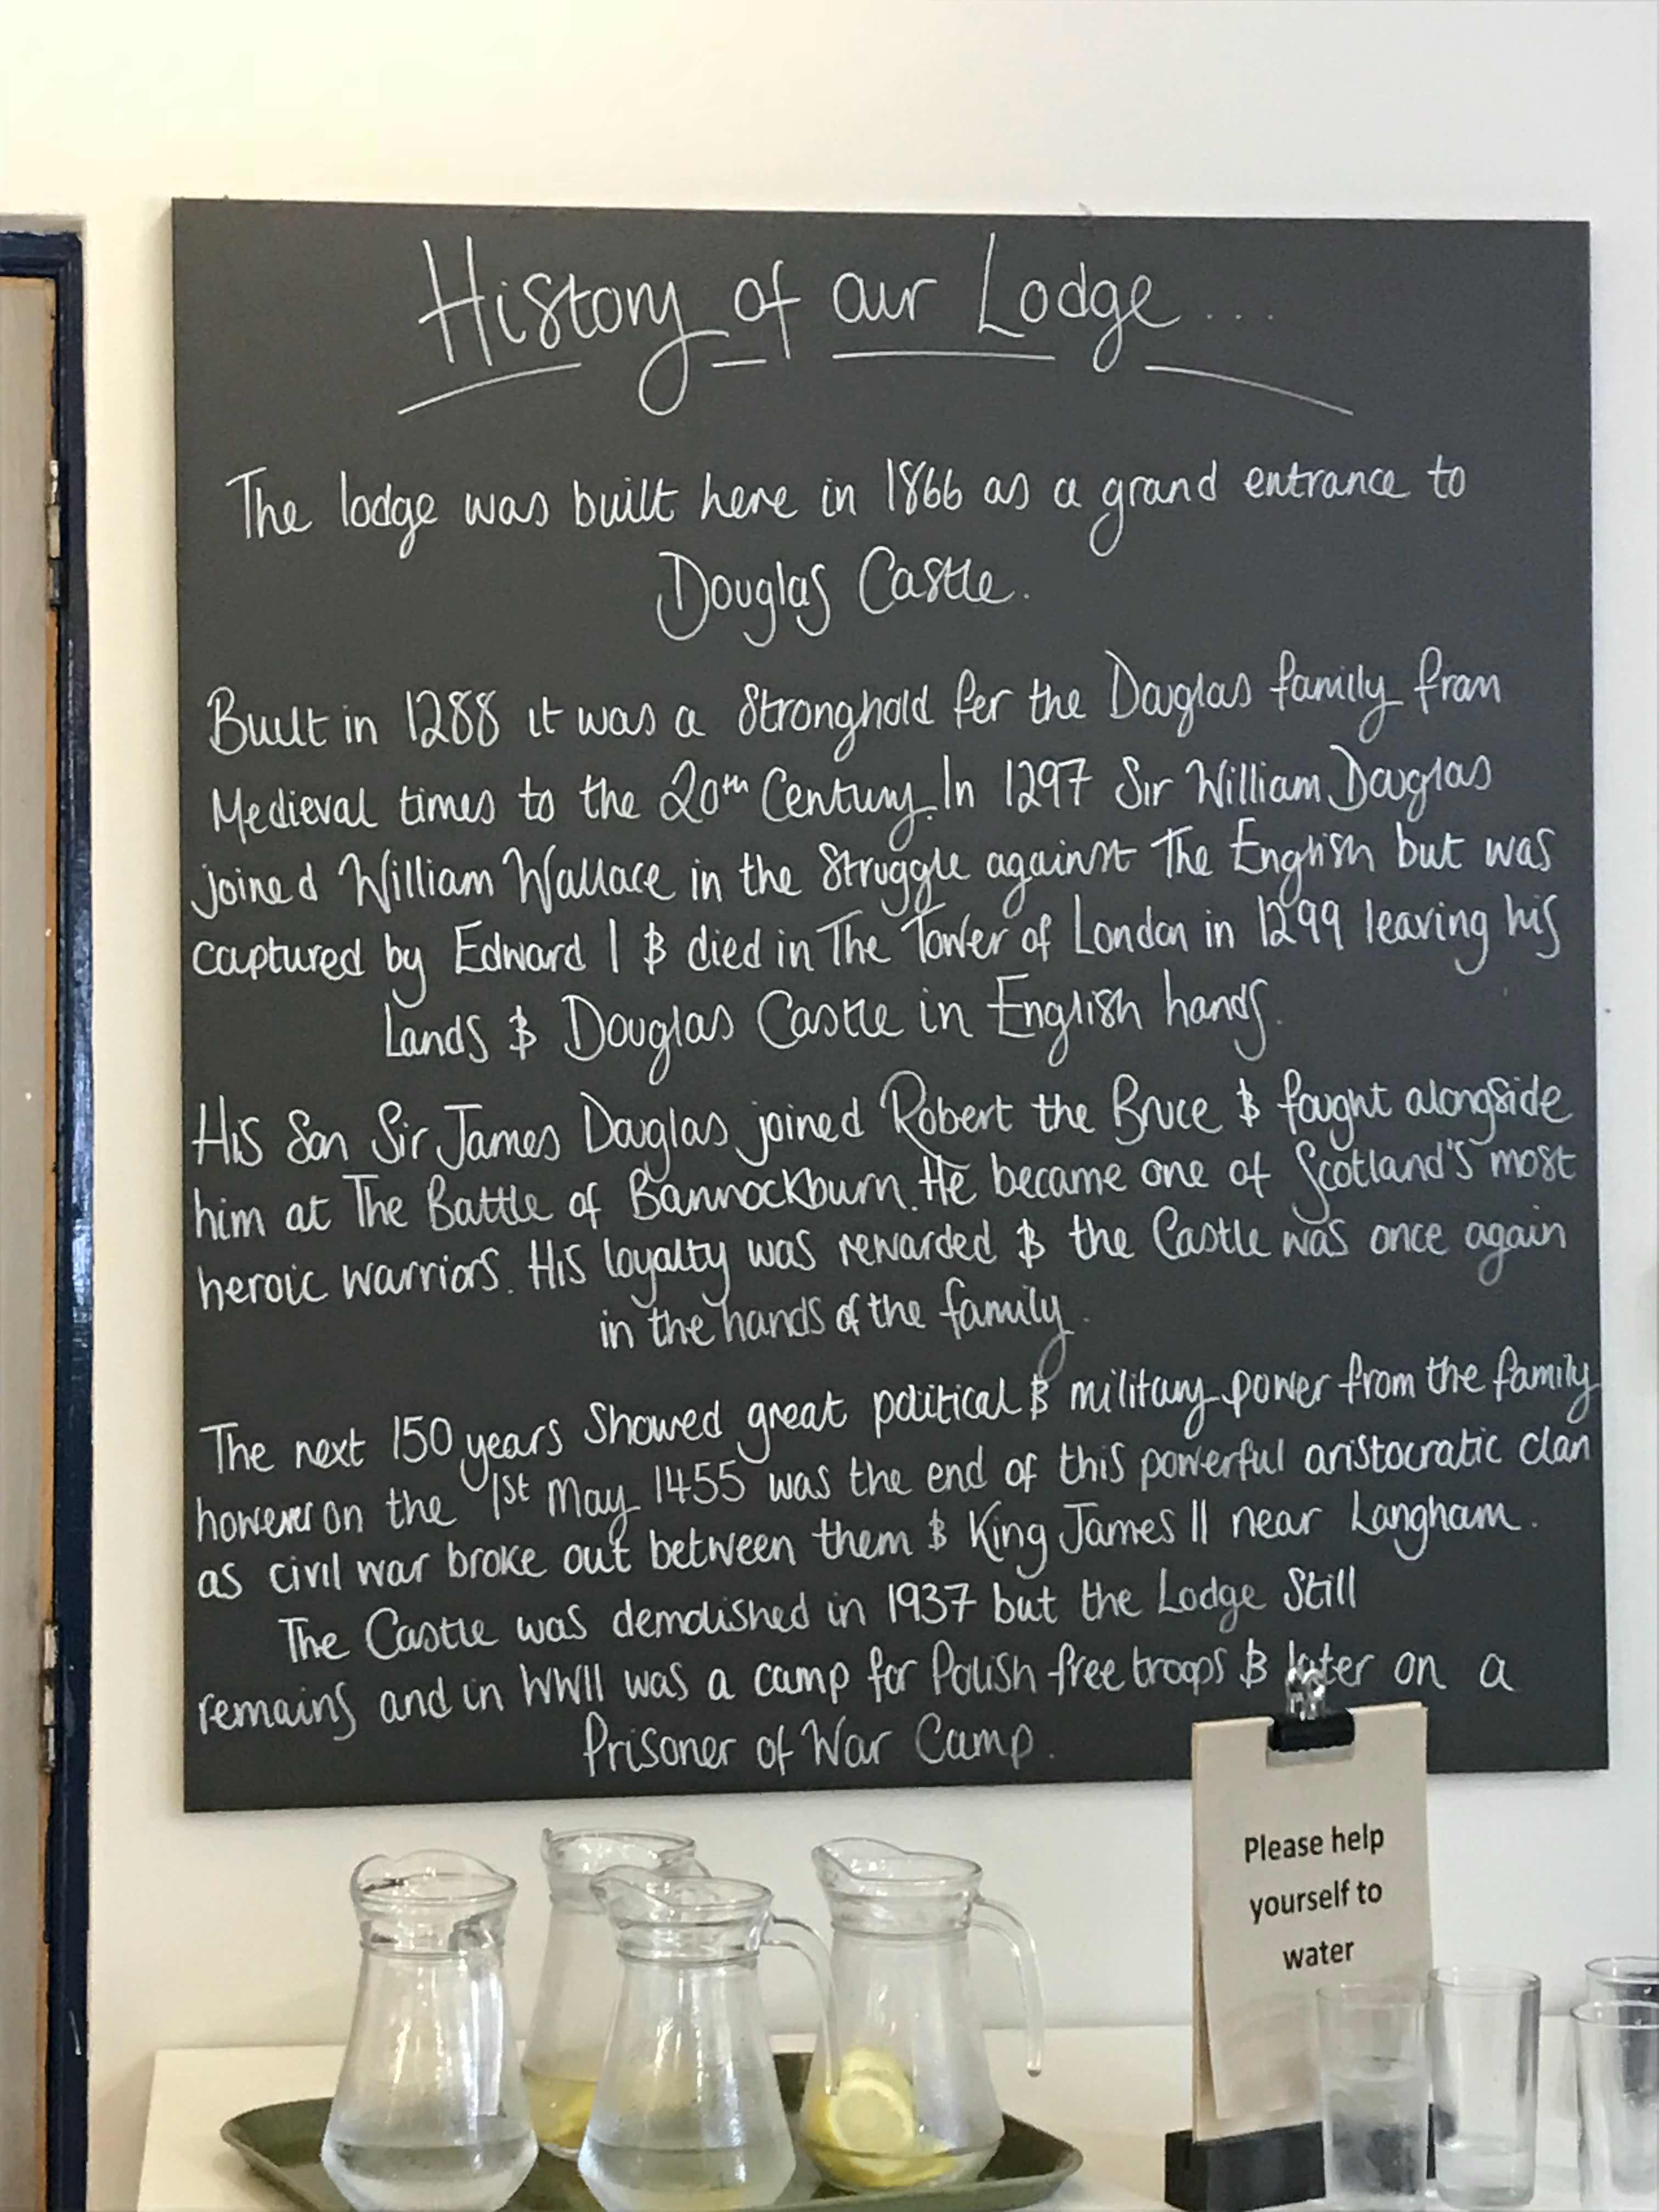 History of our Lodge...
The lodge was built here in 1866 as a grand entrance to
Douglas Castle.
Built in 1288 it was a Stronghold for the Douglas family from
Medieval times to the 20th Century. In 1297 Sir William Douglas
joined William Wallace in the Struggle against The English but was
captured by Edward I & died in The Tower of London in 1299 leaving his
Lands & Douglas Castle in English hands.
His Son Sir James Douglas joined Robert the Bruce & fought alongside
him at The Battle of Bannockburn. He became one of Scotland's most
heroic warriors. His loyalty was rewarded & the Castle was once again
in the hands of the family.
The next 150 years Showed great political & military power from the family
however on the 1st May 1455 was the end of this powerful aristocratic clan
as civil war broke out between them & King James II near Langham.
The Castle was demolished in 1937 but the Lodge Still
remains and in WWII was a camp for Polish free troops & later on a
Prisoner of War Camp.
Please help
yourself to
water